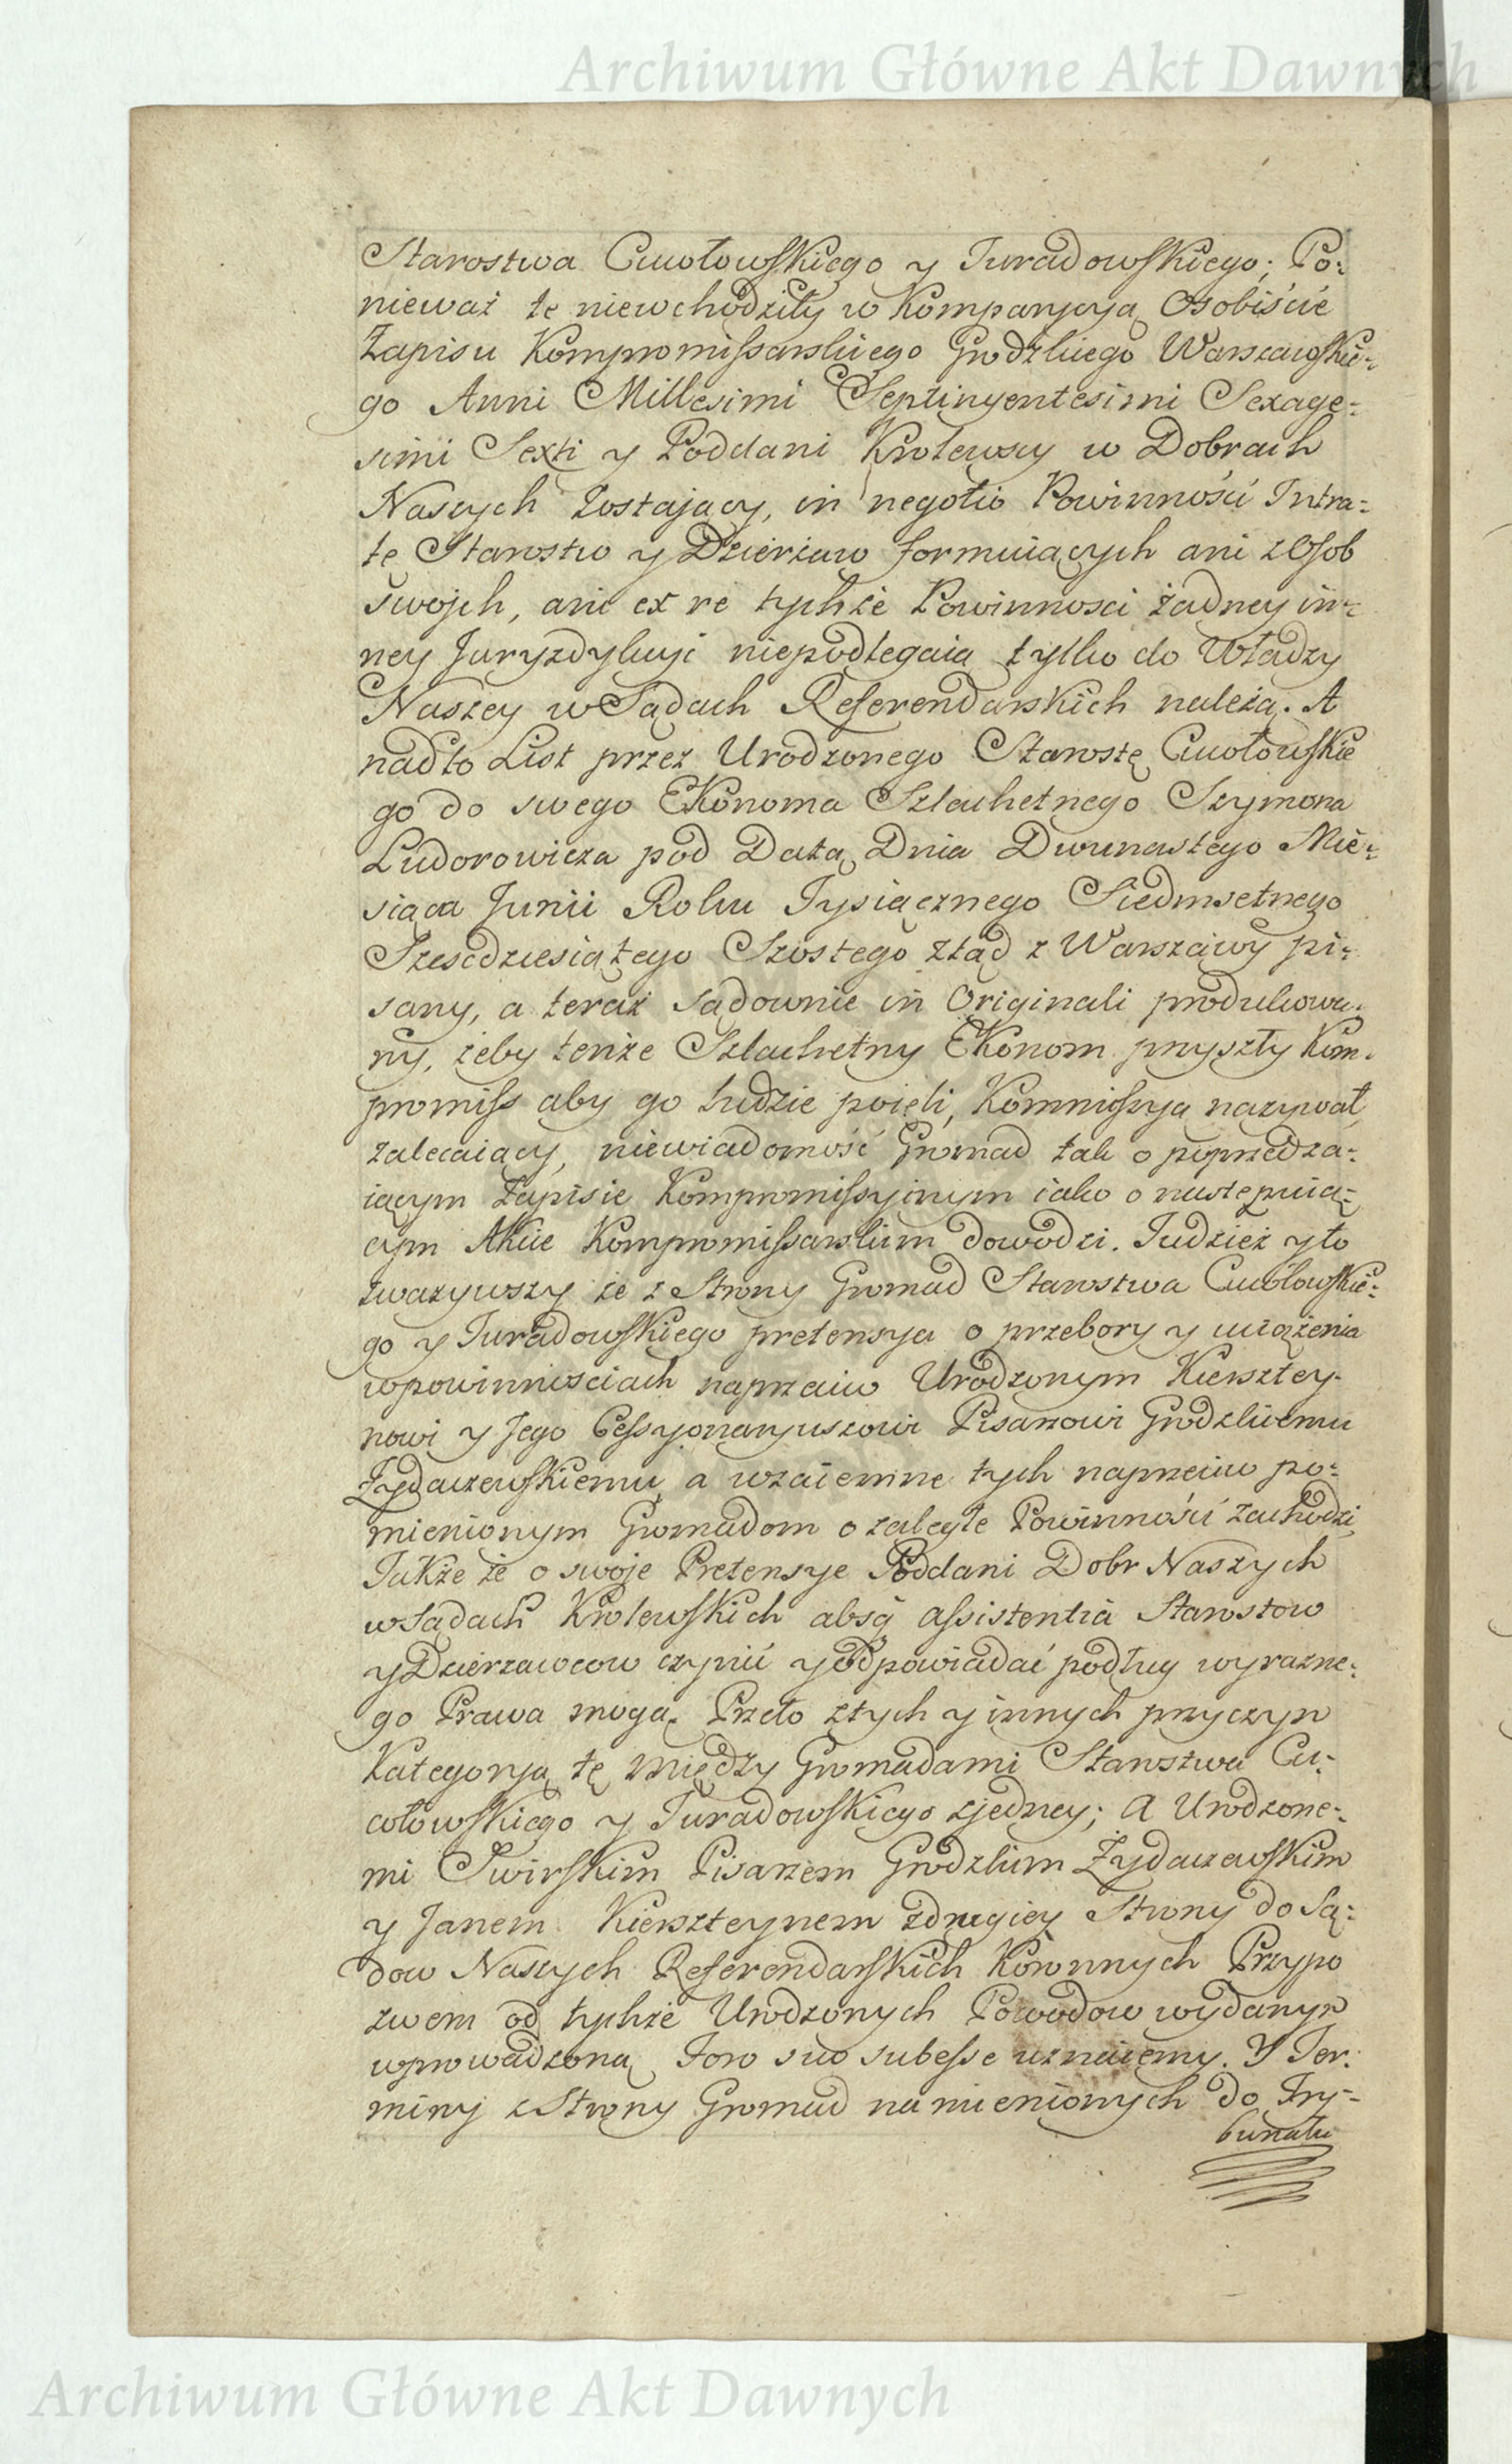 Archiwum Główne Akt Dawnych
Starostwa Cucołowskiego y Juradowskiego; Po:
nieważ te niewchodziły w Kompanycyą Osobiście
Zapisu Kompromissarskiego Grodzkiego Warszawskie:
go Anni Millesimi Septingentesimi Sexage:
simi Sexti y Poddani Krolewscy w Dobrach
Naszych zostający, in negotio Powinności Intra:
tę Starostw y Dzierżaw formuiących ani z Osob
swojch, ani ex re tychże Powinnosci żadney in:
ney Juryzdykcyi niepodlegaią tylko do Władzy
Naszey w Sądach Referendarskich należą. A
nadto List przez Urodzonego Starostę Cucołowskie
go do swego Ekonoma Szlachetnego Szymona
Ludorowicza pod Datą Dnia Dwunastego Mie:
siąca Junii Roku Tysiącznego Siedmsetnego
Szescdziesiątego Szostego ztąd z Warszawy pi:
sany, a teraz sądownie in Originali produkowa:
ny, żeby tenże Szlachetny Ekonom przyszły Kom:
promiss aby go ludzie poięli, Kommissyą nazywał,
zalecaiący, niewiadomość Gromad tak o poprzedza:
iącym Zapisie Kompromissyinym iako o następuią:
cym Akcie Kompromissarskim dowodzi. Tudzież y to
zwazywszy że z Strony Gromad Starostwa Cucołowskie:
go y Juradowskiego pretensya o przebory y uciążenia
w powinnosciach naprzeciw Urodzonym Kiersztey:
nowi y Jego Cessyonaryuszowi Pisarzowi Grodzkiemu
Żydaczewskiemu, a wzaiemne tych naprzeciw po:
mienionym Gromadom o zaległe Powinności zachodzi,
Także że o swoje Pretensye Poddani Dobr Naszych
w Sądach Krolewskich absq assistentia Starostow
y Dzierzawcow czynić y odpowiadać podług wyrazne:
go Prawa mogą. Przeto z tych y innych przyczyn
Kategoryą tę między Gromadami Starostwa Cu:
cołowskiego y Juradowskiego z jedney; A Urodzone:
mi Swirskim Pisarzem Grodzkim Żydaczewskim
y Janem Kierszteynem z drugiey Strony do Są:
dow Naszych Referendarskich Koronnych Przypo
zwem od tychże Urodzonych Powodow wydanym
wprowadzoną Foro suo subesse uznaiemy. Y Ter:
miny z Strony Gromad na mienionych do Try:
bunału
Archiwum Główne Akt Dawnych